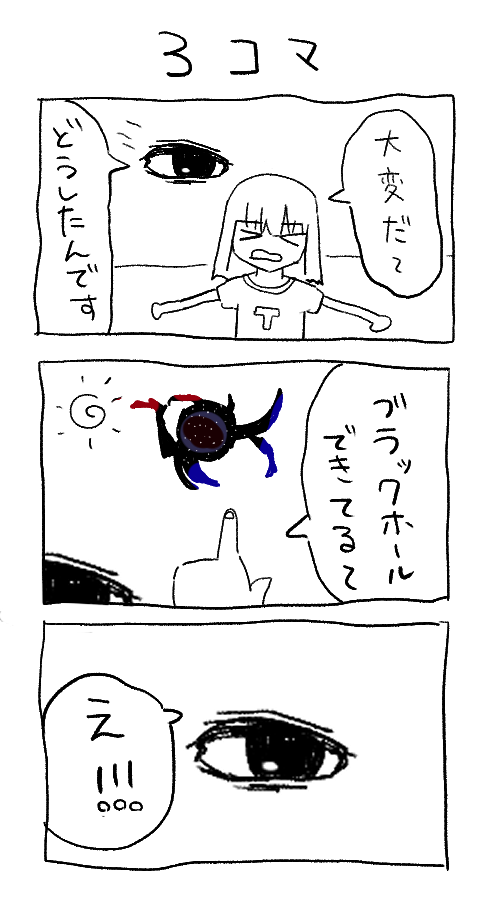 3コマ
大変だ~
どうしたんです
T
ブラックホール
できてるて
え
!!!